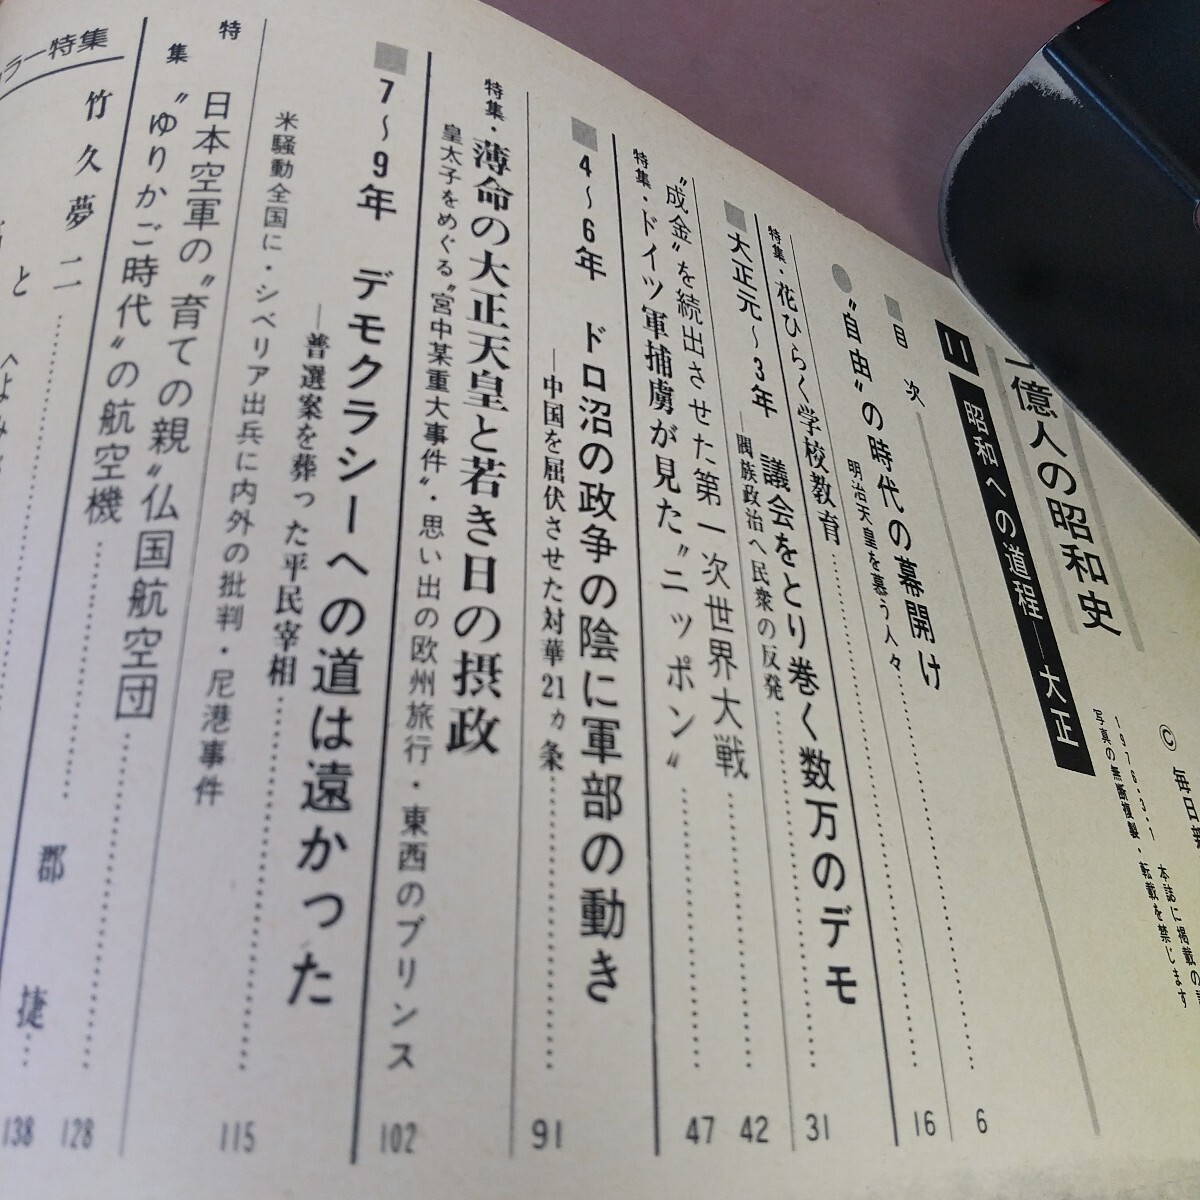 億人の昭和史
11 昭和への道程―大正
©毎日新
1976・3・1 本誌に掲載の
写真の無断複製・転載を禁じます
目 次
“自由”の時代の幕開け
明治天皇を慕う人々 6
特集・花ひらく学校教育 16
大正元〜3年 議会をとり巻く数万のデモ
―閥族政治へ民衆の反発 31
“成金”を続出させた第一次世界大戦 42
特集・ドイツ軍捕虜が見た“ニッポン” 47
4〜6年 ドロ沼の政争の陰に軍部の動き
―中国を屈伏させた対華21ヵ条 91
特集・薄命の大正天皇と若き日の摂政
皇太子をめぐる“宮中某重大事件”・思い出の欧州旅行・東西のプリンス 102
7〜9年 デモクラシーへの道は遠かった
―普選案を葬った平民宰相
米騒動全国に・シベリア出兵に内外の批判・尼港事件 115
特集 日本空軍の“育ての親”仏国航空団
“ゆりかご時代”の航空機 128
ラー特集
竹久夢二
と
郡 捷 138